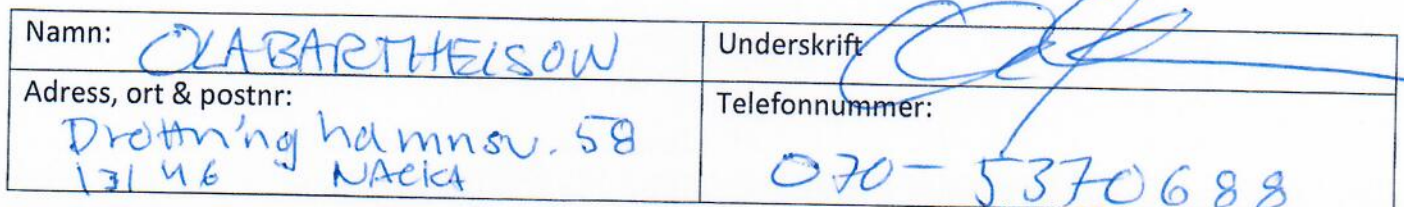 Namn: OLA BARTHELSON
Underskrift
Adress, ort & postnr:
Drottninghamnsv. 58
131 46 NACKA
Telefonnummer:
070-5370688